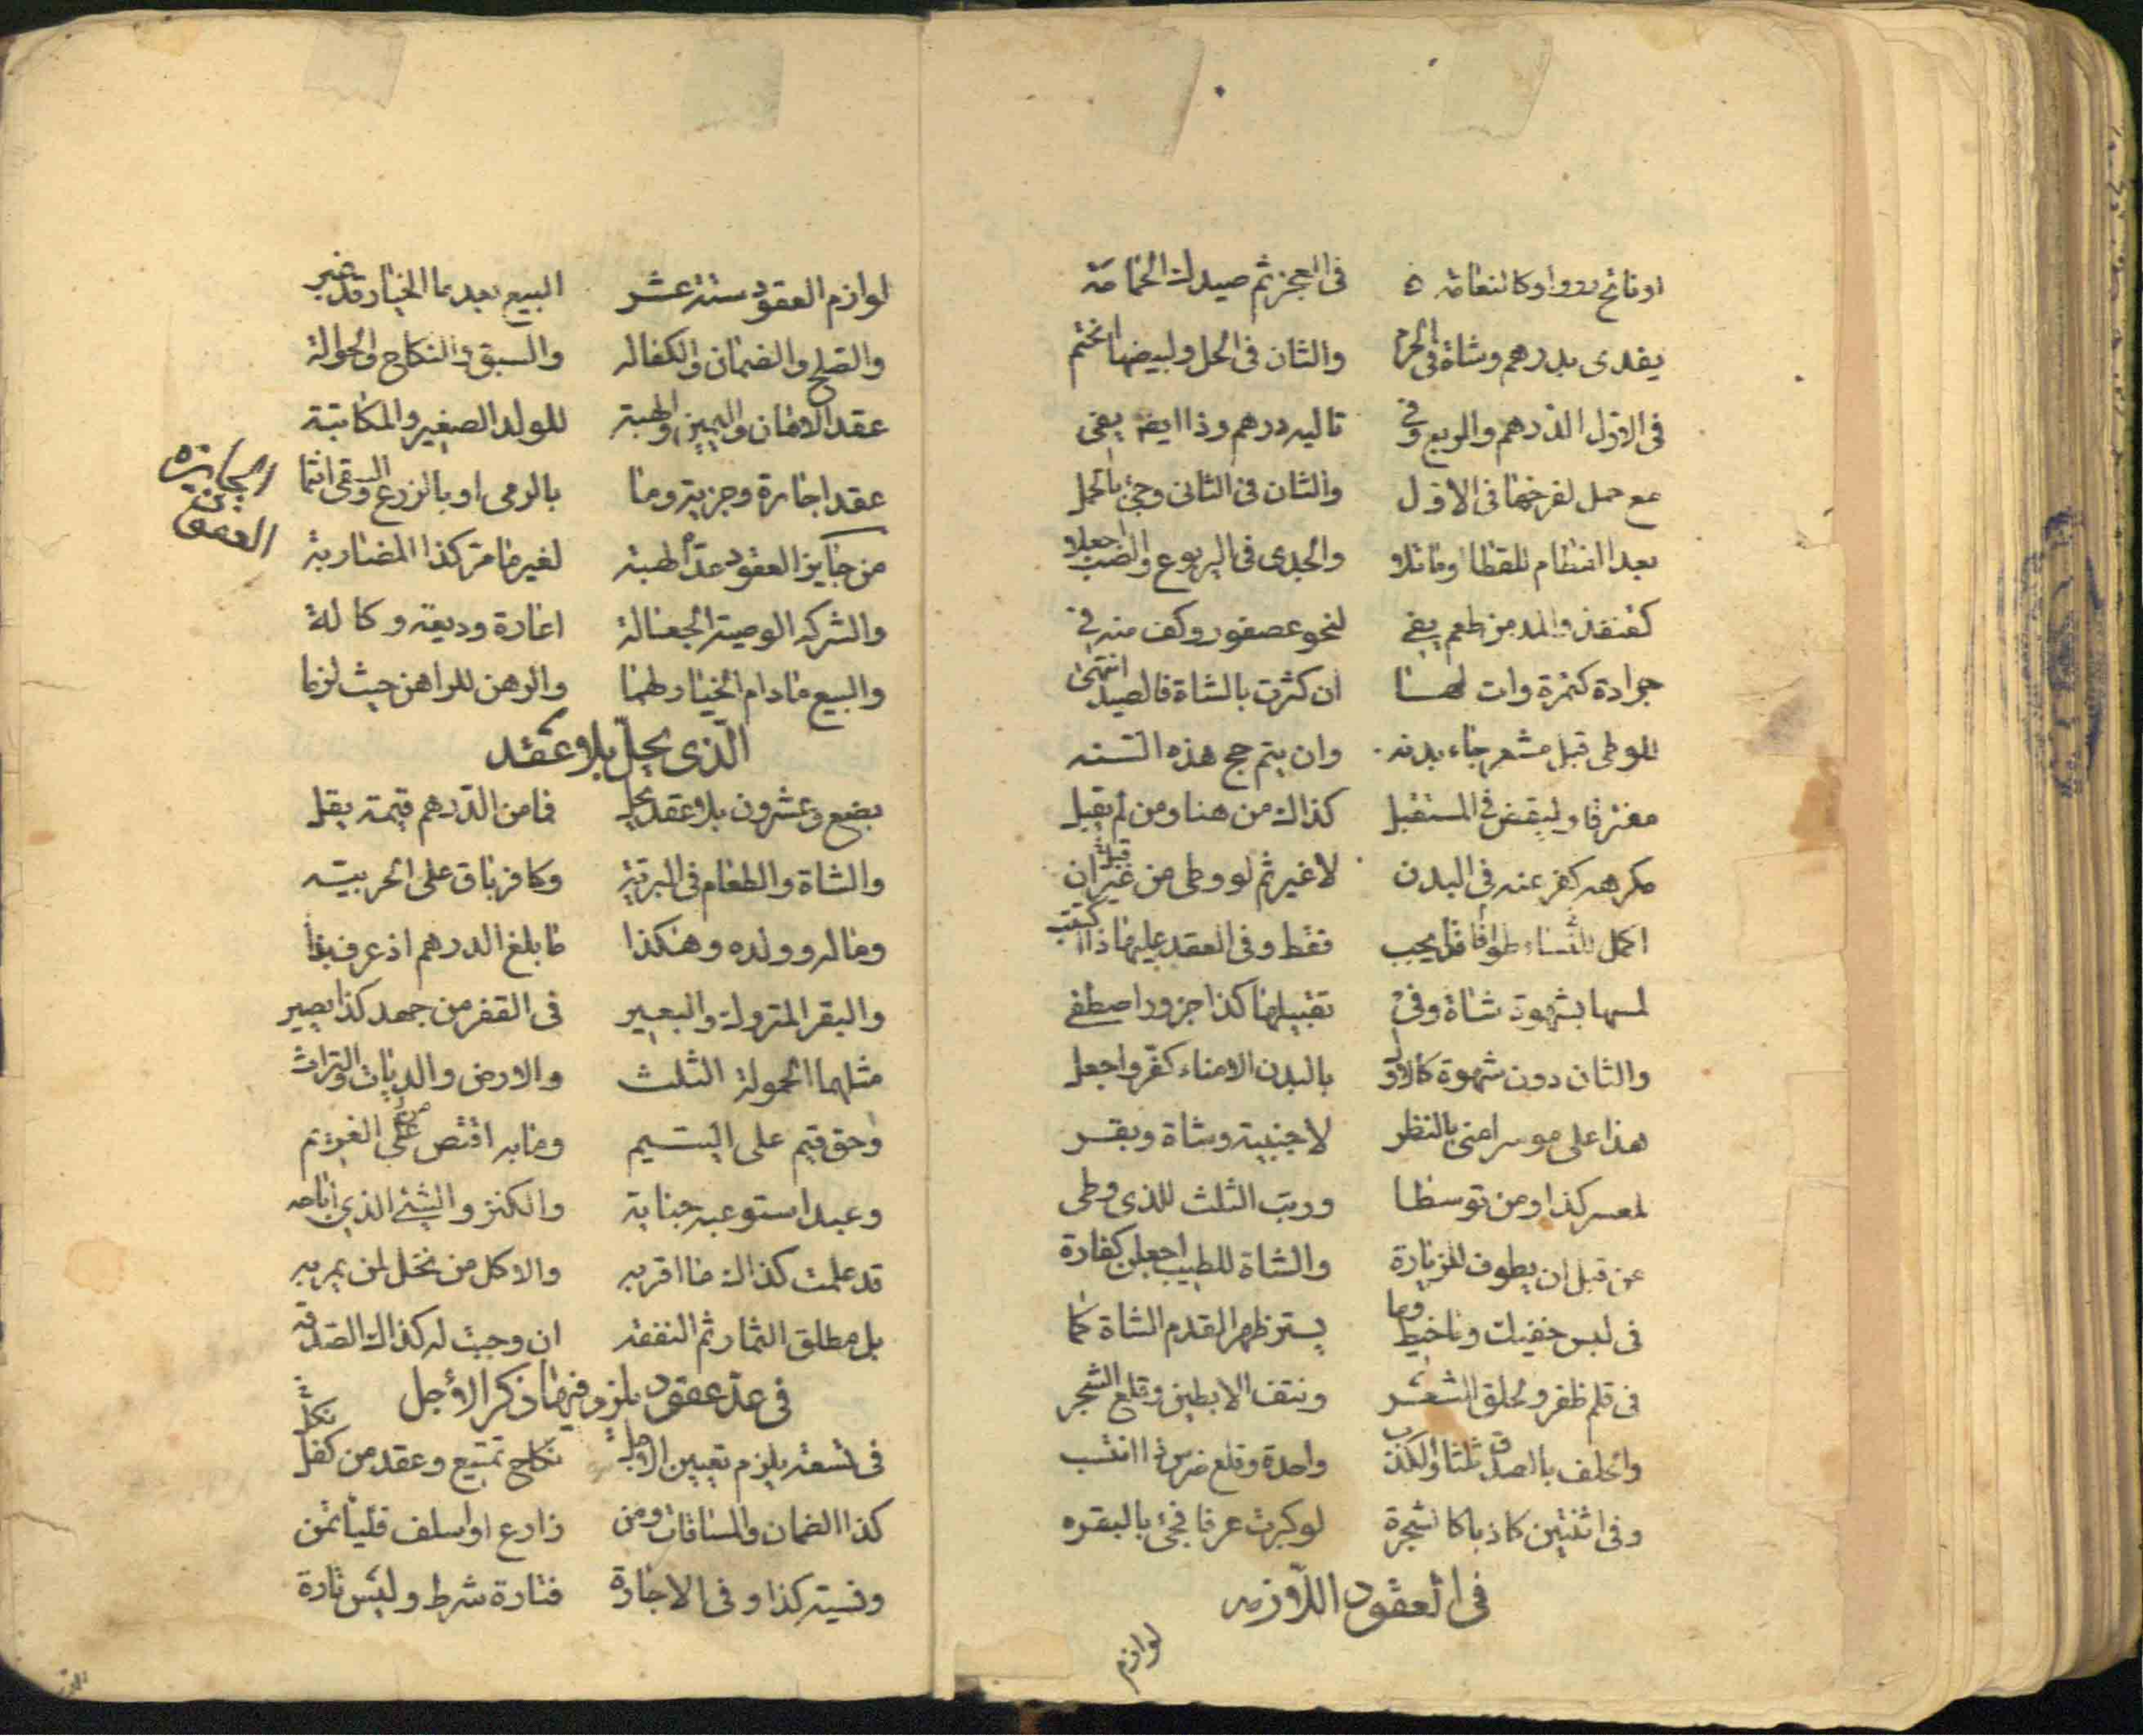 في العجز ثم صيدك الحمامة
يفدى بدرهم وشاة في الحرم والثان في الحل ولبيضها انختم
في الاول الدرهم والربع وفي تاليه درهم وذا ايضا يفي
مع حمل لفرخها في الاول والثان في الثاني وجئ بالحمل
بعد انتظام للقطا وما تلا والجدى في اليربوع والضب اجعلا
كقنفذ والمد من طعم يفي لنحو عصفور وكف منه في
جرادة كتمرة وات لهنا ان كثرت بالشاة فالصيد انتهى
للوطى قبل مشعر جاء بدنه وان يتم حج هذه السنه
مفترقا وليقض في المستقبل كذاك من هنا ومن لم يقبل
مكرهه كفر عنه في البدن لا غير ثم لو وطى من غير ان
اكمل للنساء طوافا قد يجب فقط وفي العقد عليها ذا كتب
لمسها بشهوة شاة وفي تقبيلها كذا جزور اصطفي
والثان دون شهوة كالاول بالبدن الامناء كفر واجعل
هذا على موسر امنى بالنظر لاجنبية وشاة وبقر
لمعسر كذا ومن توسطا ورتب الثلث للذى وطى
من قبل ان يطوف للزيارة والشاة للطيب اجعلن كفارة
في لبس خفيك وما خيط وما يستر ظهر القدم الشاة كما
في قلم ظفر ولحلق الشعر ونتف الابطين وقلع الشجر
واحلف بالصدق ثلثا والكذب واحدة وقلع ضرس ذا انتسب
وفي اثنتين كاذبا كا شجرة لو كبرت عرفا فجئ بالبقره
في العقود اللازمه
لوازم
لوازم العقود ستة عشر البيع بعد ما الخيار قد غبر
والصلح والضمان والكفاله والسبق والنكاح والحوالة
عقد الامان واليمين والهبة للولد الصغير والمكاتبة
عقد اجارة وجزية وما بالرمى او بالزرع والسقى انتما
الجايزة من العقود
من جايز العقود عد الهبة لغير ما مر كذا المضاربة
والشركه الوصية الجعالة اعارة وديعة وكالة
والبيع مادام الخيار لهما والرهن للراهن حيث لزما
الذى يحل بلا عقد
بضع وعشرون بلا عقد يحل فما من الدرهم قيمة يقل
والشاة والطعام في البرية وكافر باق على الحربيه
وماله وولده وهكذا ما بلغ الدرهم اذ عرف بذا
والبقر المتروك والبعير في القفر من جهد كذا يصير
مثلهما الحمولة الثلث والارض والديات والتراث
وحق قيم على اليتيم وما به اقتص على الغريم
وعبد استوعبه جناية والكنز والشئ الذي اباحه
قد علمت كذاك ما اقر به والاكل من نخل لمن يمر به
بل مطلق الثمار ثم النفقه ان وجبت له كذاك الصدقه
في عد عقود يلزم فيها ذكر الأجل
نكاح
في تسعة يلزم تعيين الاجل نكاح تمتيع وعقد من كفل
كذا الضمان والمساقات ومن زارع او اسلف فليأتمن
ونسية كذا وفي الاجارة فتارة شرط وليس تارة